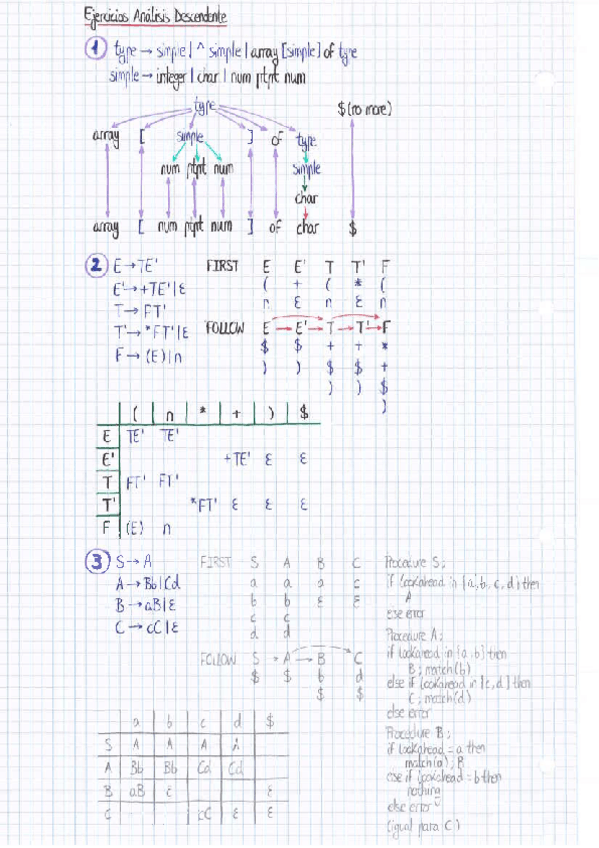 Ejercicios Análisis Descendente
1 type → simple | ^ simple | array [simple] of type
simple → integer | char | num ptpt num
type $ (no more)
array [ simple ] of type
num ptpt num simple
char
array [ num ptpt num ] of char $
2 E → TE' FIRST E E' T T' F
E' → +TE' | ε ( + ( * (
T → FT' n ε n ε n
T' → *FT' | ε FOLLOW E → E' → T → T' → F
F → (E) | n $ $ + + *
) ) $ $ +
) ) $
)
( n * + ) $
E TE' TE'
E' +TE' ε ε
T FT' FT'
T' *FT' ε ε ε
F (E) n
3 S → A FIRST S A B C
A → Bb | Cd a a a c
B → aB | ε b b ε ε
C → cC | ε c c
d d
FOLLOW S → A → B C
$ $ b d
$ $
a b c d $
S A A A A
A Bb Bb Cd Cd
B aB ε ε
C cC ε ε
Procedure S;
if lookahead in {a,b,c,d} then
A
else error
Procedure A;
if lookahead in {a,b} then
B; match(b)
else if lookahead in {c,d} then
C; match(d)
else error
Procedure B;
if lookahead = a then
match(a); B
else if lookahead = b then
nothing
else error
(igual para C)